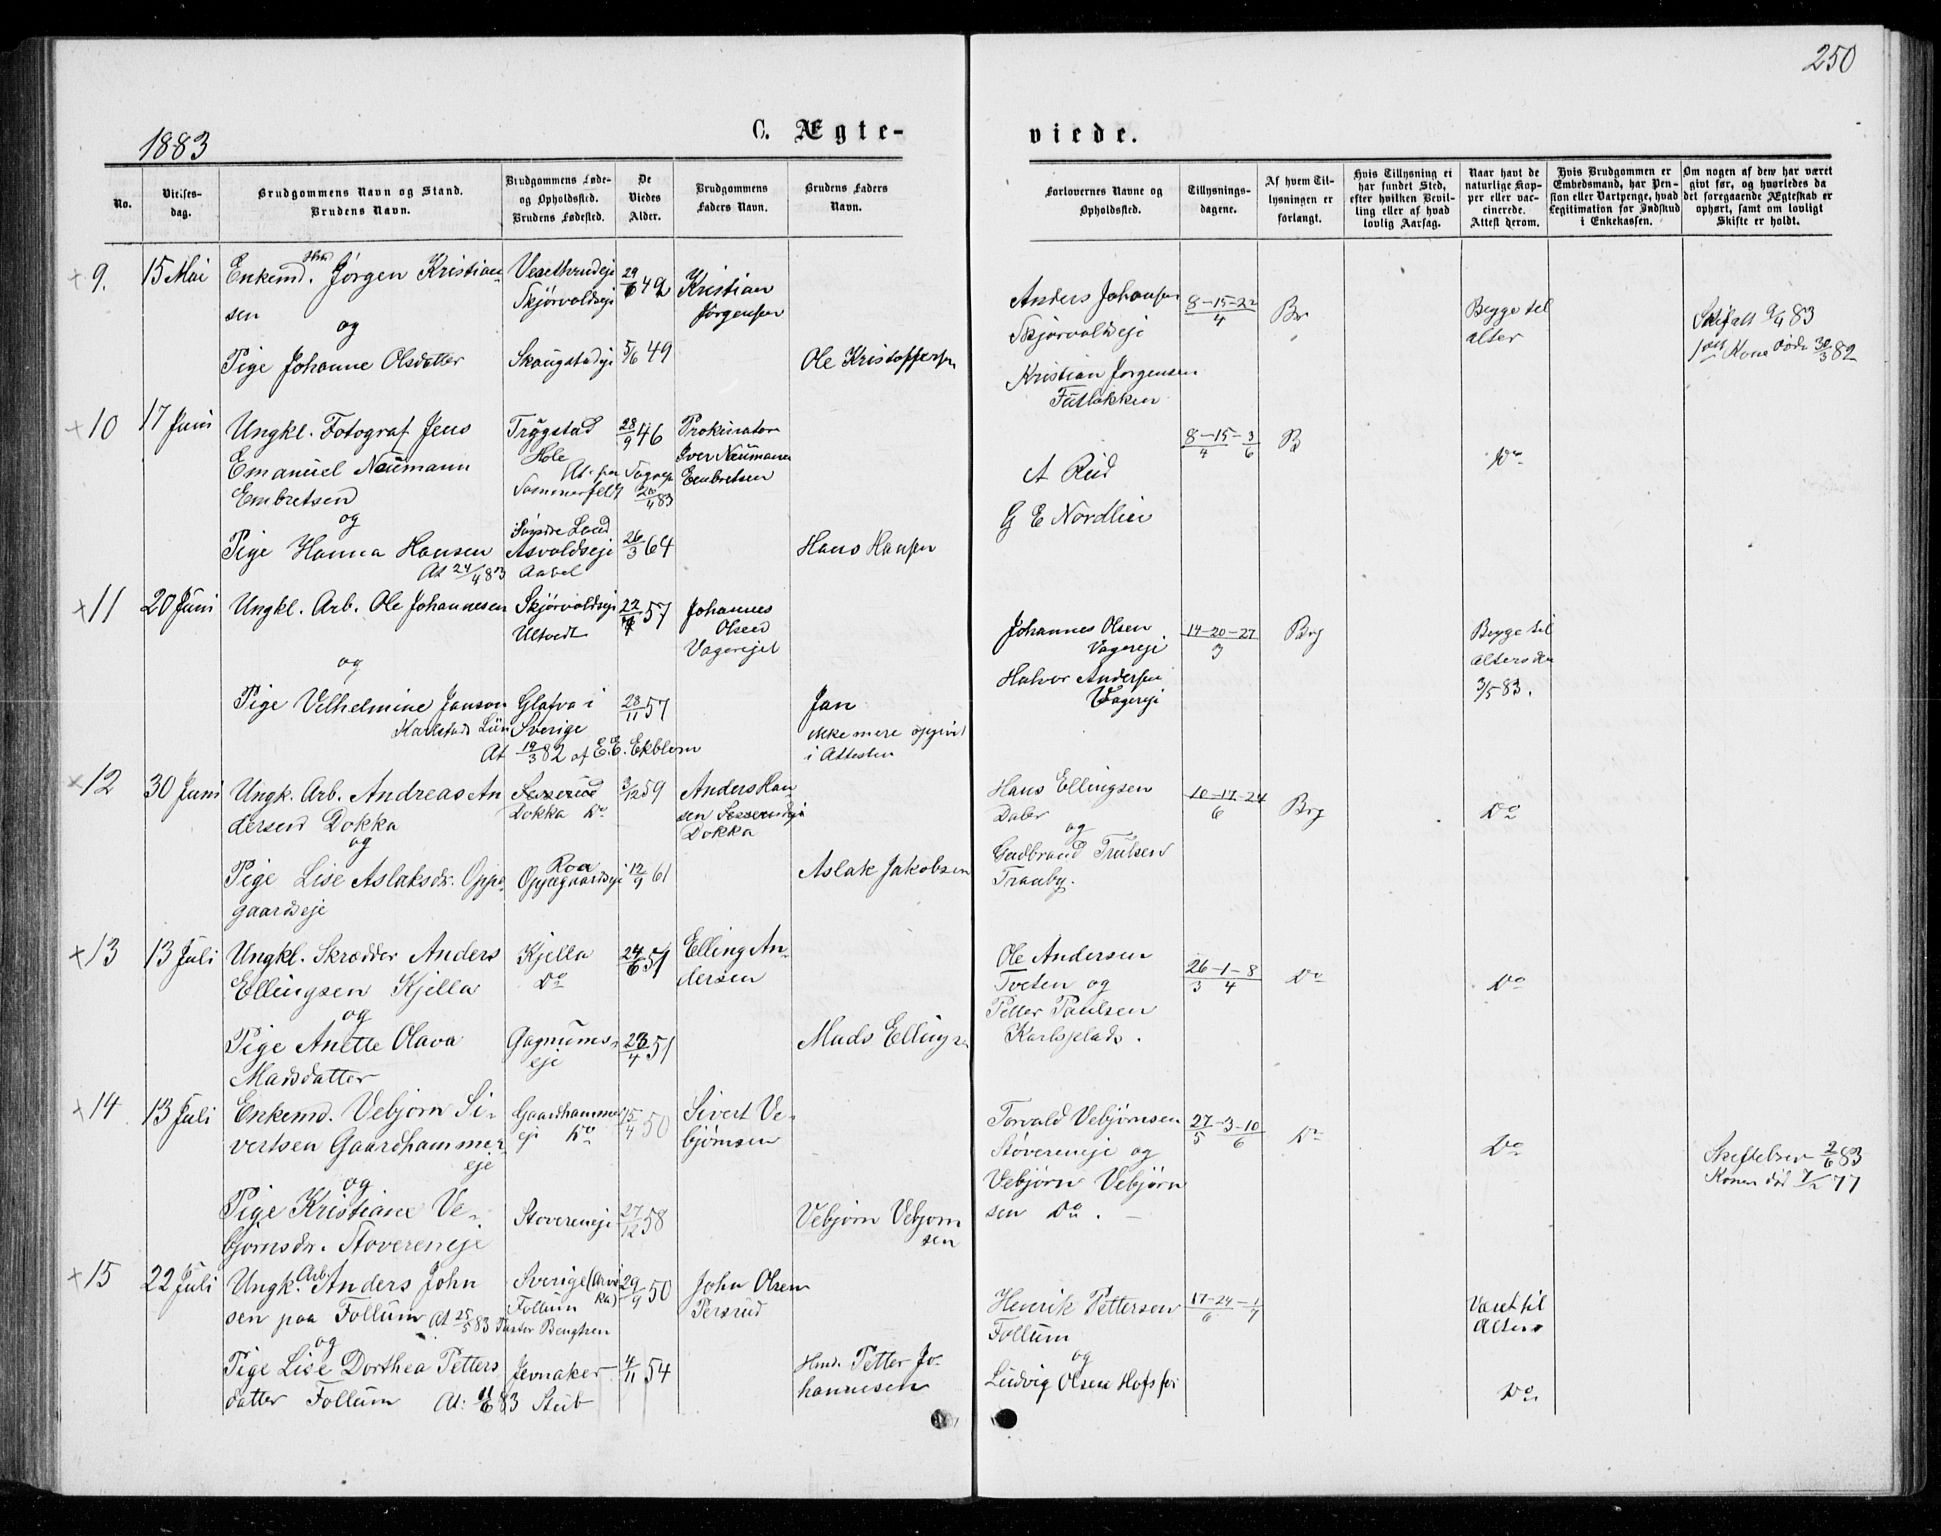 250
1883
C. Ægte-
viede.
No.
Vielses-
dag.
Brudgommens Navn og Stand.
Brudens Navn.
Brudgommens Føde-
og Opholdssted.
Brudens Fødested.
De
Viedes
Alder.
Brudgommens
Faders Navn.
Brudens Faders
Navn.
Forlovernes Navne og
Opholdssted.
Tillysnings-
dagene.
Af hvem Til-
lysningen er
forlangt.
Hvis Tillysning ei
har fundet Sted,
efter hvilken Bevil-
ling eller af hvad
lovlig Aarsag.
Naar havt de
naturlige Kop-
per eller vac-
cinerede.
Attest derom.
Hvis Brudgommen er
Embedsmand, har Pen-
sion eller Vartpenge, hvad
Legitimation for Indskud
i Enkekassen.
Om nogen af dem har været
givt før, og hvorledes da
det foregaaende Ægteskab er
ophørt, samt om lovligt
Skifte er holdt.
9. 15 Mai Enkemd. Jörgen Kristian- 29/6 49 Kristian
sen Skjörvoldseje Jörgensen
og
Pige Johanne Olsdatter Skougstadeje 5/6 49 Ole Kristoffersen
Anders Johansen 8-15-22/4 Br Begge til
Skjörvoldseje alter
Kristian Jörgensen
Kone död 30/3 82
10 17 Juni Ungkl. Fotograf Jens Trygstad 28/9 46 Prokurator
Emanuel Naumann Hole Iver Naumann
Embretsen Sommerfelt 20/4 83 Embretsen
og
Pige Hanna Hansen Asvoldseje 26/3 64 Hans Hansen
At 24/4 83
A Rud 8-15/4-3/6 B Do
G E Nordlien
11 20 Juni Ungkl. Arb. Ole Johannesen Skjörvoldseje 22/7 57 Johannes
Ultvedt Olsen
og Vagereje
Pige Vilhelmine Janson Glafva i 28/11 57 Jan
Karlstads Län Sverige ikke mere opgivet
At 19/3 82 af E. E. Ekblom i Attesten
Johannes Olsen 14-20-27/3 Brg Begge til
Vagereje alters den
Halvor Andersen 3/5 83.
Vagereje
12 30 Juni Ungk. Arb. Andreas An 3/12 59 Anders Han
dersen Dokka Dokka Do sen
og Dokka
Pige Lise Aslaksdr. Oppe- Roa Oppegaardseje 12/9 61 Aslak Jakobsen
gaardseje
Hans Ellingsen 10-17-24/6 Brg Do
Daler
og
Gudbrand Trulsen
Tranby.
13 13 Juli Ungkl. Skrædder Anders Kjella 24/6 51 Elling An-
Ellingsen Kjella Do dersen
og
Pige Anette Olava Gagnums- 28/4 51 Mads Ellingsen
Madsdatter eje
Ole Andersen 26/3-1-8/4 Do Do
Tveten og
Petter Paulsen
Karlsplads.
14 13 Juli Enkemd. Vebjörn Si- Gaardhammer 15/4 50 Sivert Ve-
vertsen Gaardhammer- eje Do bjørnsen
eje
og
Pige Kristiane Ve- Stovereneje 27/12 58 Vebjörn Vebjörn
bjornsdr. Stovereneje sen
Torvald Vebjørnsen 27/5-3-10/6 Do Do Skiftebrev 2/6 83
Støvereneje og Konen död 7/2 77
Vebjørn Vebjørn
sen Do.
15 22 Juli Ungk. Arb. Anders John Sverige (Arvi 29/9 50 John Olsen
sen paa Follum At 25/5 83 Follum ka) Persrud
og Pastor Bengtsen
Pige Lise Dorthea Petters Jevnaker 4/11 54 Hmd. Petter Jo-
datter Follum At: 11/6 83 Stub hannesen
Henrik Pettersen 17-24/6-1/7 Været til
Follum Alters
og
Ludvig Olsen Hofsfos Do